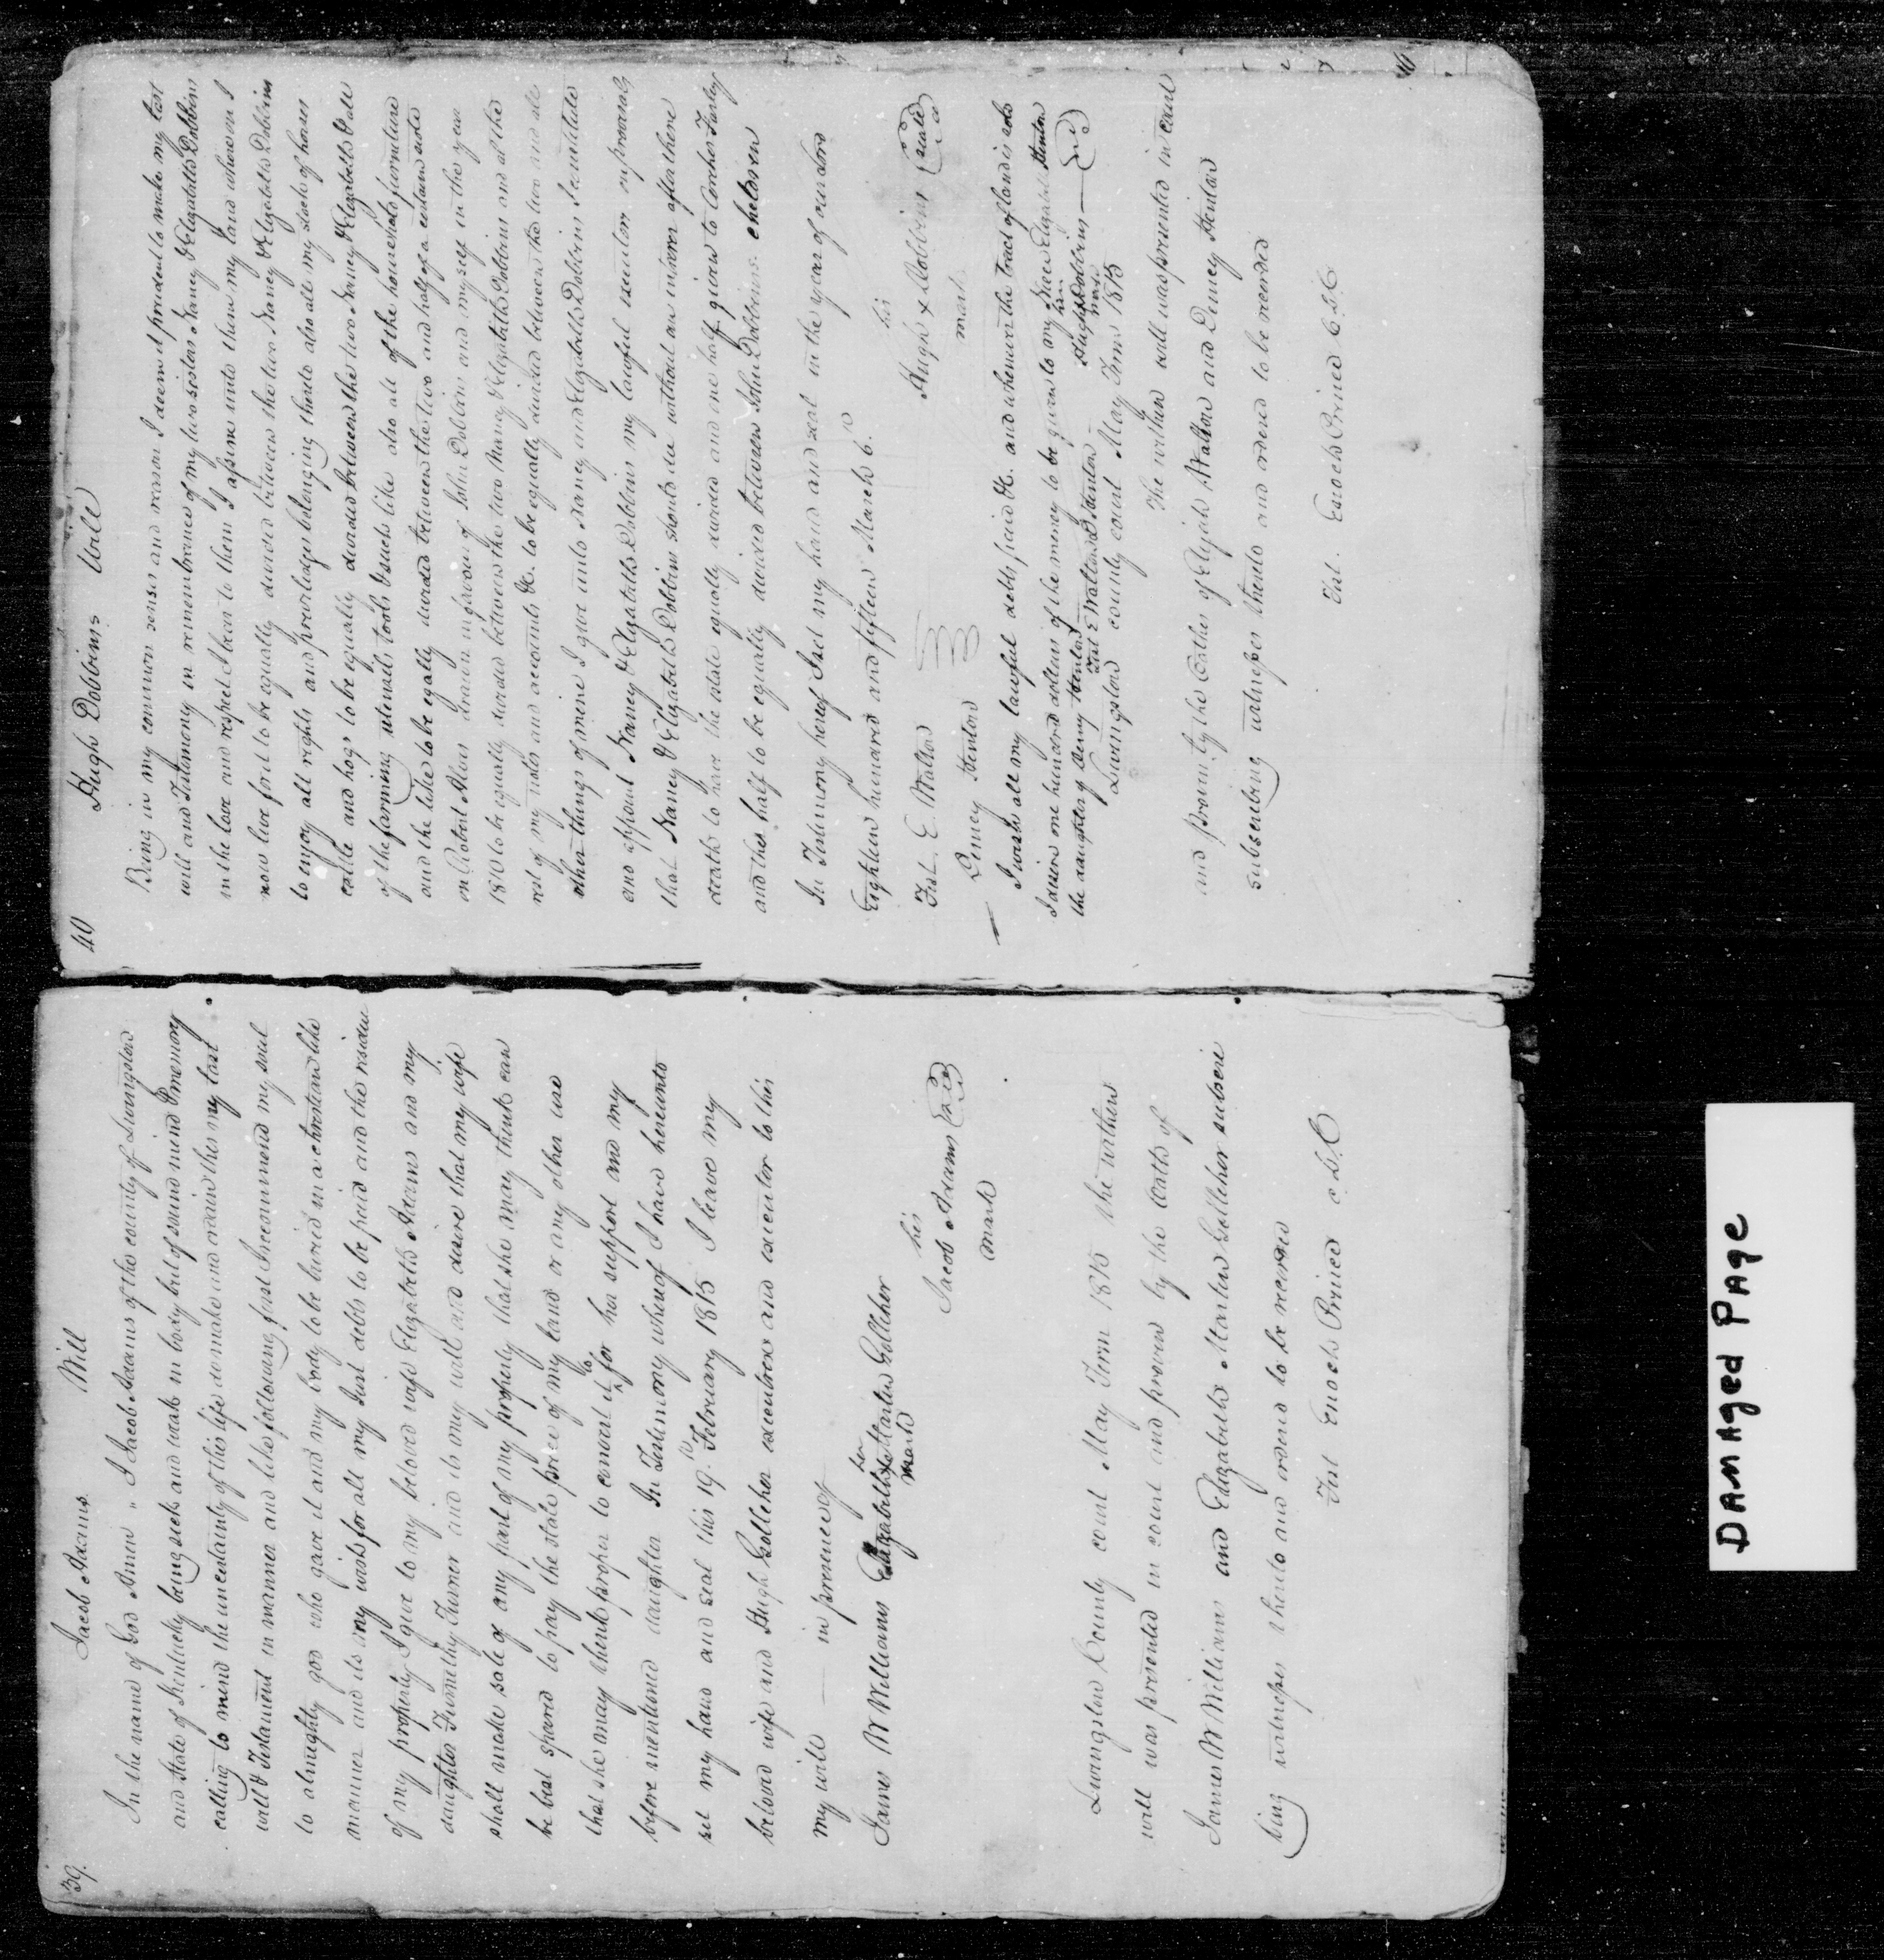 39.
Jacob Adams Will
In the name of God Amen " I Jacob Adams of the county of Livingston
and State of Kentucky being sick and weak in body but of sound mind & memory
calling to mind the uncertainty of this life do make and ordain this my last
will & Testament in manner and like following first I recommend my soul
to almighty god who gave it and my body to be buried in a christian like
manner and its my wish for all my Just debts to be paid and the residue
of my property I give to my beloved wife Elizabeth Adams and my
daughter Turner and its my will and desire that my wife
shall make sale of any part of my property that she may think can
be best spared to pay the state price of my land or any other use
that she may think proper to convert it to for her support and my
before mentioned daughter In Testimony whereof I have hereunto
set my hand and seal this 19. February 1815 I leave my
beloved wife and Hugh Golleher executrex and executor to this
my will — in presence of
James W Williams Elizabeth her x mark Martin Golleher
his
Jacob Adams seal
mark
Livingston County court May Term 1815 The within
will was presented in court and proven by the Oaths of
James W Williams and Elizabeth Martin Golleher subscri
bing witnesses thereto and ordered to be recorded
Test Enoch Prince C.L.C
40
Hugh Dobbins Will
Being in my common senses and reason I deem it prudent to make my last
will and Testimony in remembrance of my two sisters Nancy & Elizabeth Dobbins
in the love and respect I bear to them I assine unto them my land whereon I
now live for it to be equally divided between the two Nancy & Elizabeth Dobbins
to enjoy all rights and priviledges belonging thereto also all my stock of horses
cattle and hogs to be equally divided between the two Nancy & Elizabeth & all
of the farming utensils tools & such like also all of the household furniture
and the like to be egally divided between the two and half of a certain note
on Robert drawn in favour of John Dobbins and myself in the year
1810 to be equally divided between the two Nancy & Elizabeth Dobbins and all the
rest of my notes and accounts &c. to be equally divided between the two and all
other things of mine I give unto Nancy and Elizabeth Dobbins I
and appoint Nancy & Elizabeth Dobbins my lawful executors or provided
that Nancy & Elizabeth Dobbins should die without an after there
death to have the estate equally divided and one half given to Finley
and the half to be equally divided between John Dobbins children
In Testimony hereof I set my hand and seal in the year of our lord
Eighteen hundred and fifteen March 6.
his
Test. E. Walton Hugh x Dobbins seald
mark
Demcy Henton
I wish all my lawful debts paid &c. and whenever the tract of land is sold
I desire one hundred dollars of the money to be given to my Niece Elizabeth Henton
the daughter of Demcy Henton Hugh his x mark Dobbins — seal
Test E Walton D Henton
Livingston county court May Term 1815
The within will was presented in court
and proven by the Oathes of Elijah Walton and Demcy Henton
subscribing witnesses thereto and ordered to be recorded
Test. Enoch Prince C.L.C.
DAMAged PAge